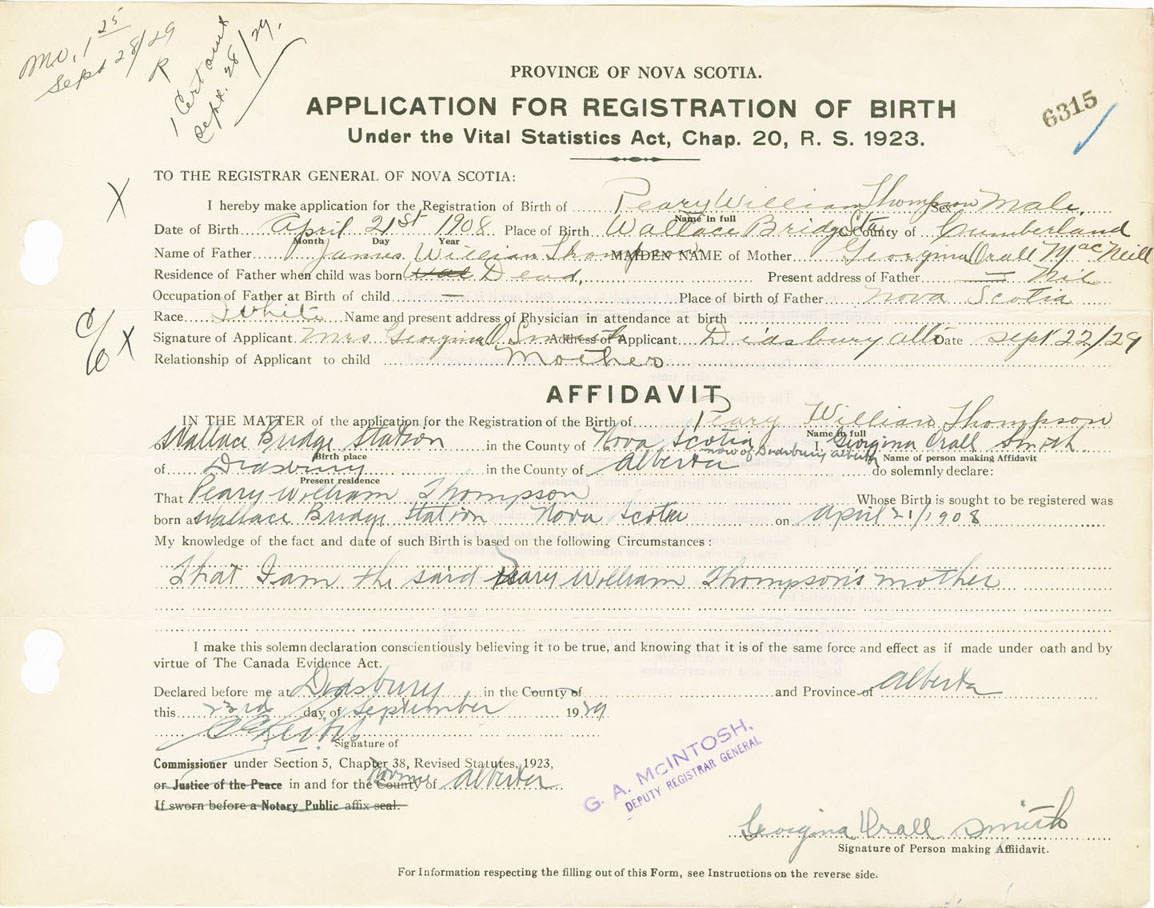 Mo. 1 25
Sept 28/29
R
1 Cert out
Sept. 28/29.
PROVINCE OF NOVA SCOTIA.
APPLICATION FOR REGISTRATION OF BIRTH
6315
Under the Vital Statistics Act, Chap. 20, R. S. 1923.
TO THE REGISTRAR GENERAL OF NOVA SCOTIA:
X
I hereby make application for the Registration of Birth of Peary William Thompson Sex Male.
Name in full
Date of Birth April 21st 1908 Place of Birth Wallace Bridge Sta County of Cumberland
Month Day Year
Name of Father James William Thompson MAIDEN NAME of Mother Georgina Orall MacNeill
Residence of Father when child was born Dead, Present address of Father — Nil
Occupation of Father at Birth of child — Place of birth of Father Nova Scotia
Race White Name and present address of Physician in attendance at birth
X
Signature of Applicant Mrs Georgina O. Smith Address of Applicant Didsbury alta Date Sept 22/29
Relationship of Applicant to child Mother
AFFIDAVIT
IN THE MATTER of the application for the Registration of the Birth of Peary William Thompson
Name in full
of Wallace Bridge Station in the County of Nova Scotia I, Georgina Orall Smith
Birth place now of Didsbury alberta Name of person making Affidavit
of Didsbury in the County of Alberta do solemnly declare:
Present residence
That Peary William Thompson Whose Birth is sought to be registered was
born at Wallace Bridge Station Nova Scotia on April 21/1908
My knowledge of the fact and date of such Birth is based on the following Circumstances:
That I am the said Peary William Thompson's mother
I make this solemn declaration conscientiously believing it to be true, and knowing that it is of the same force and effect as if made under oath and by
virtue of The Canada Evidence Act.
Declared before me at Didsbury in the County of and Province of Alberta
this 23rd day of September 1929
Signature of
Commissioner under Section 5, Chapter 38, Revised Statutes, 1923,
or Justice of the Peace in and for the Province County of Alberta
If sworn before a Notary Public affix seal.
G. A. McINTOSH,
DEPUTY REGISTRAR GENERAL
Georgina Orall Smith
Signature of Person making Affidavit.
For Information respecting the filling out of this Form, see Instructions on the reverse side.